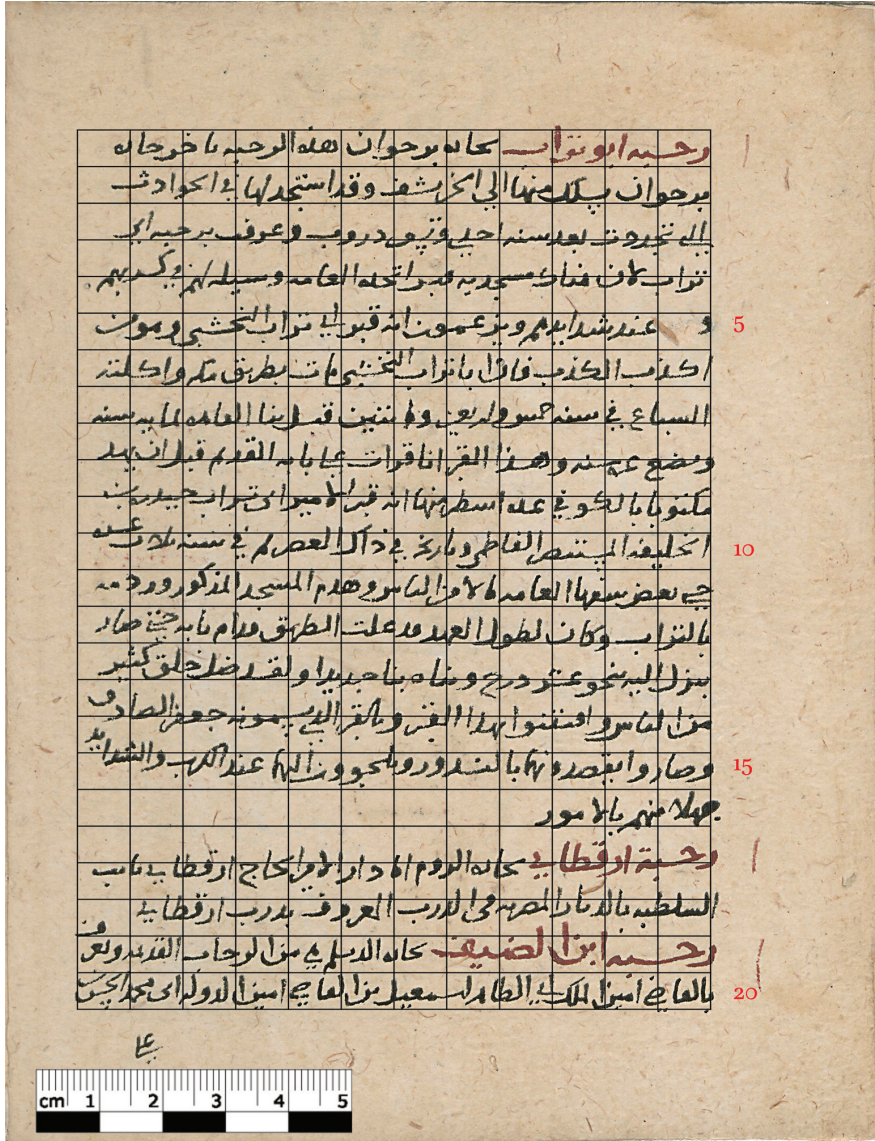 رحبه ابو تراب بحاره برجوان هذه الرحبه باخر حاره
برجوان يسلك منها الي الخرنشف وقد استجد لها في الحوادث
التي تجددت بعد سنه احدي وتسعين دروب وعرفت برحبه ابي
تراب لان هناك مسجد به قبر اتخذه العامه وسيله لهم في كربهم
و عند شدايدهم ويزعمون انه قبر ابي تراب النخشبي وهو من
اكذب الكذب فان ابا تراب النخشبي مات بطريق مكه واكلته
السباع في سنه خمس واربعين وماتين قبل بنا القاهره بمايه سنه
وبضع عشر سنه وهذا القبر انا قرات علي بابه القديم قبل ان يهد
مكتوبا بالكوفي في عده اسطر منها انه قبر الامير ابي تراب حيدره بن
الخليفه المستنصر الفاطمي وتاريخه في ذاك العصر ثم في سنه ثلاث عشره
بعض سفها العامه الناس وهدم المسجد المذكور وردمه
بالتراب وكان لطول العهد قد علت الطريق قدام بابه حتي صار
ينزل اليه نحو عشر درج وبناه بنا جديدا ولقد ضل خلق كثير
من الناس وافتتنوا بهذا القبر وبالقبر الذي يسمونه جعفر الصادق
وصاروا يقصدونها بالنذور ويلجوون اليها عند الكرب والشدايد
جهلا منهم بالامور
رحبة ارقطاي بحاره الروم امام دار الامير الحاج ارقطاي نايب
السلطنه بالديار المصريه في الدرب المعروف بدرب ارقطاي
رحبه ابن الضيف بحاره الديلم هي من الرحاب القديمه وتعرف
بالقاضي امين الملك ابي الطاهر اسمعيل بن القاضي امين الدوله ابي محمد الحسن
علي
5
10
15
20
cm 1 2 3 4 5